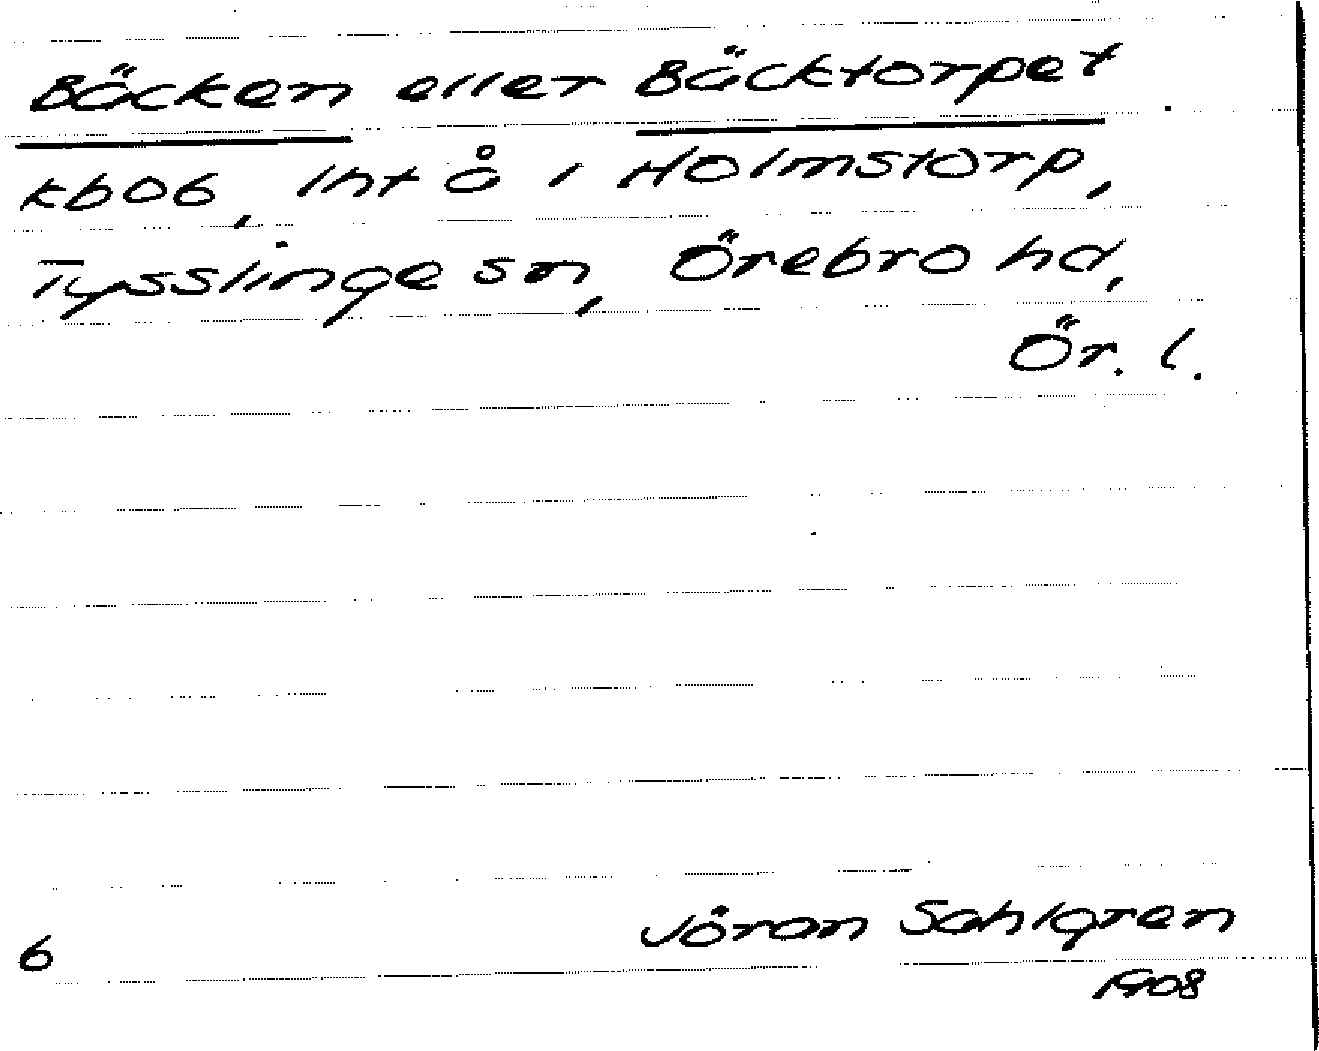 Bäcken eller Bäcktorpet
kbob, Int å i Holmstorp,
Tysslinge sn, Örebro hd,
Ör. l.
Jöran Sahlgren
6
1908